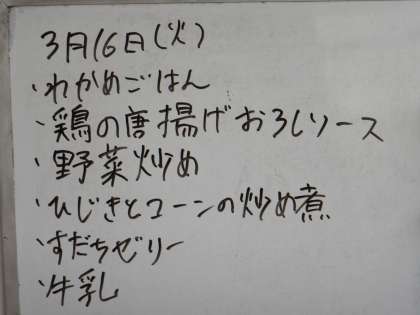 3月16日(火)
・わかめごはん
・鶏の唐揚げおろしソース
・野菜炒め
・ひじきとコーンの炒め煮
・すだちゼリー
・牛乳